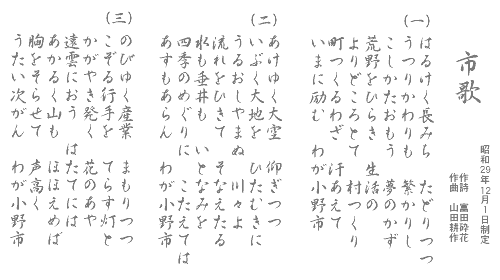 市歌
昭和29年12月1日制定
作詩 富田砕花
作曲 山田耕作
(一)
はるけく長みち たどりつつ
うつりかわりも 繁かりし
こしかたおもう 夢のかず
荒野をひらき 生活の
よりどころとて 村つくり
町つくるわざ 汗あえて
いまに励む わが小野市
(二)
あけゆく大空 仰ぎつつ
いぶく大地を ひたむきに
うるおしやまぬ 川々よ
流れをひきて そなえたる
水も垂井も いとなみを
四季のめぐりに こたえては
あすもあらん わが小野市
(三)
のびゆく産業 まもりつつ
こぞる行手を てらす灯と
かがやき発く 花のあや
遠雲におう はたてには
あかるく山も ほほえめば
胸をそらせて 声高く
うたい次がん わが小野市